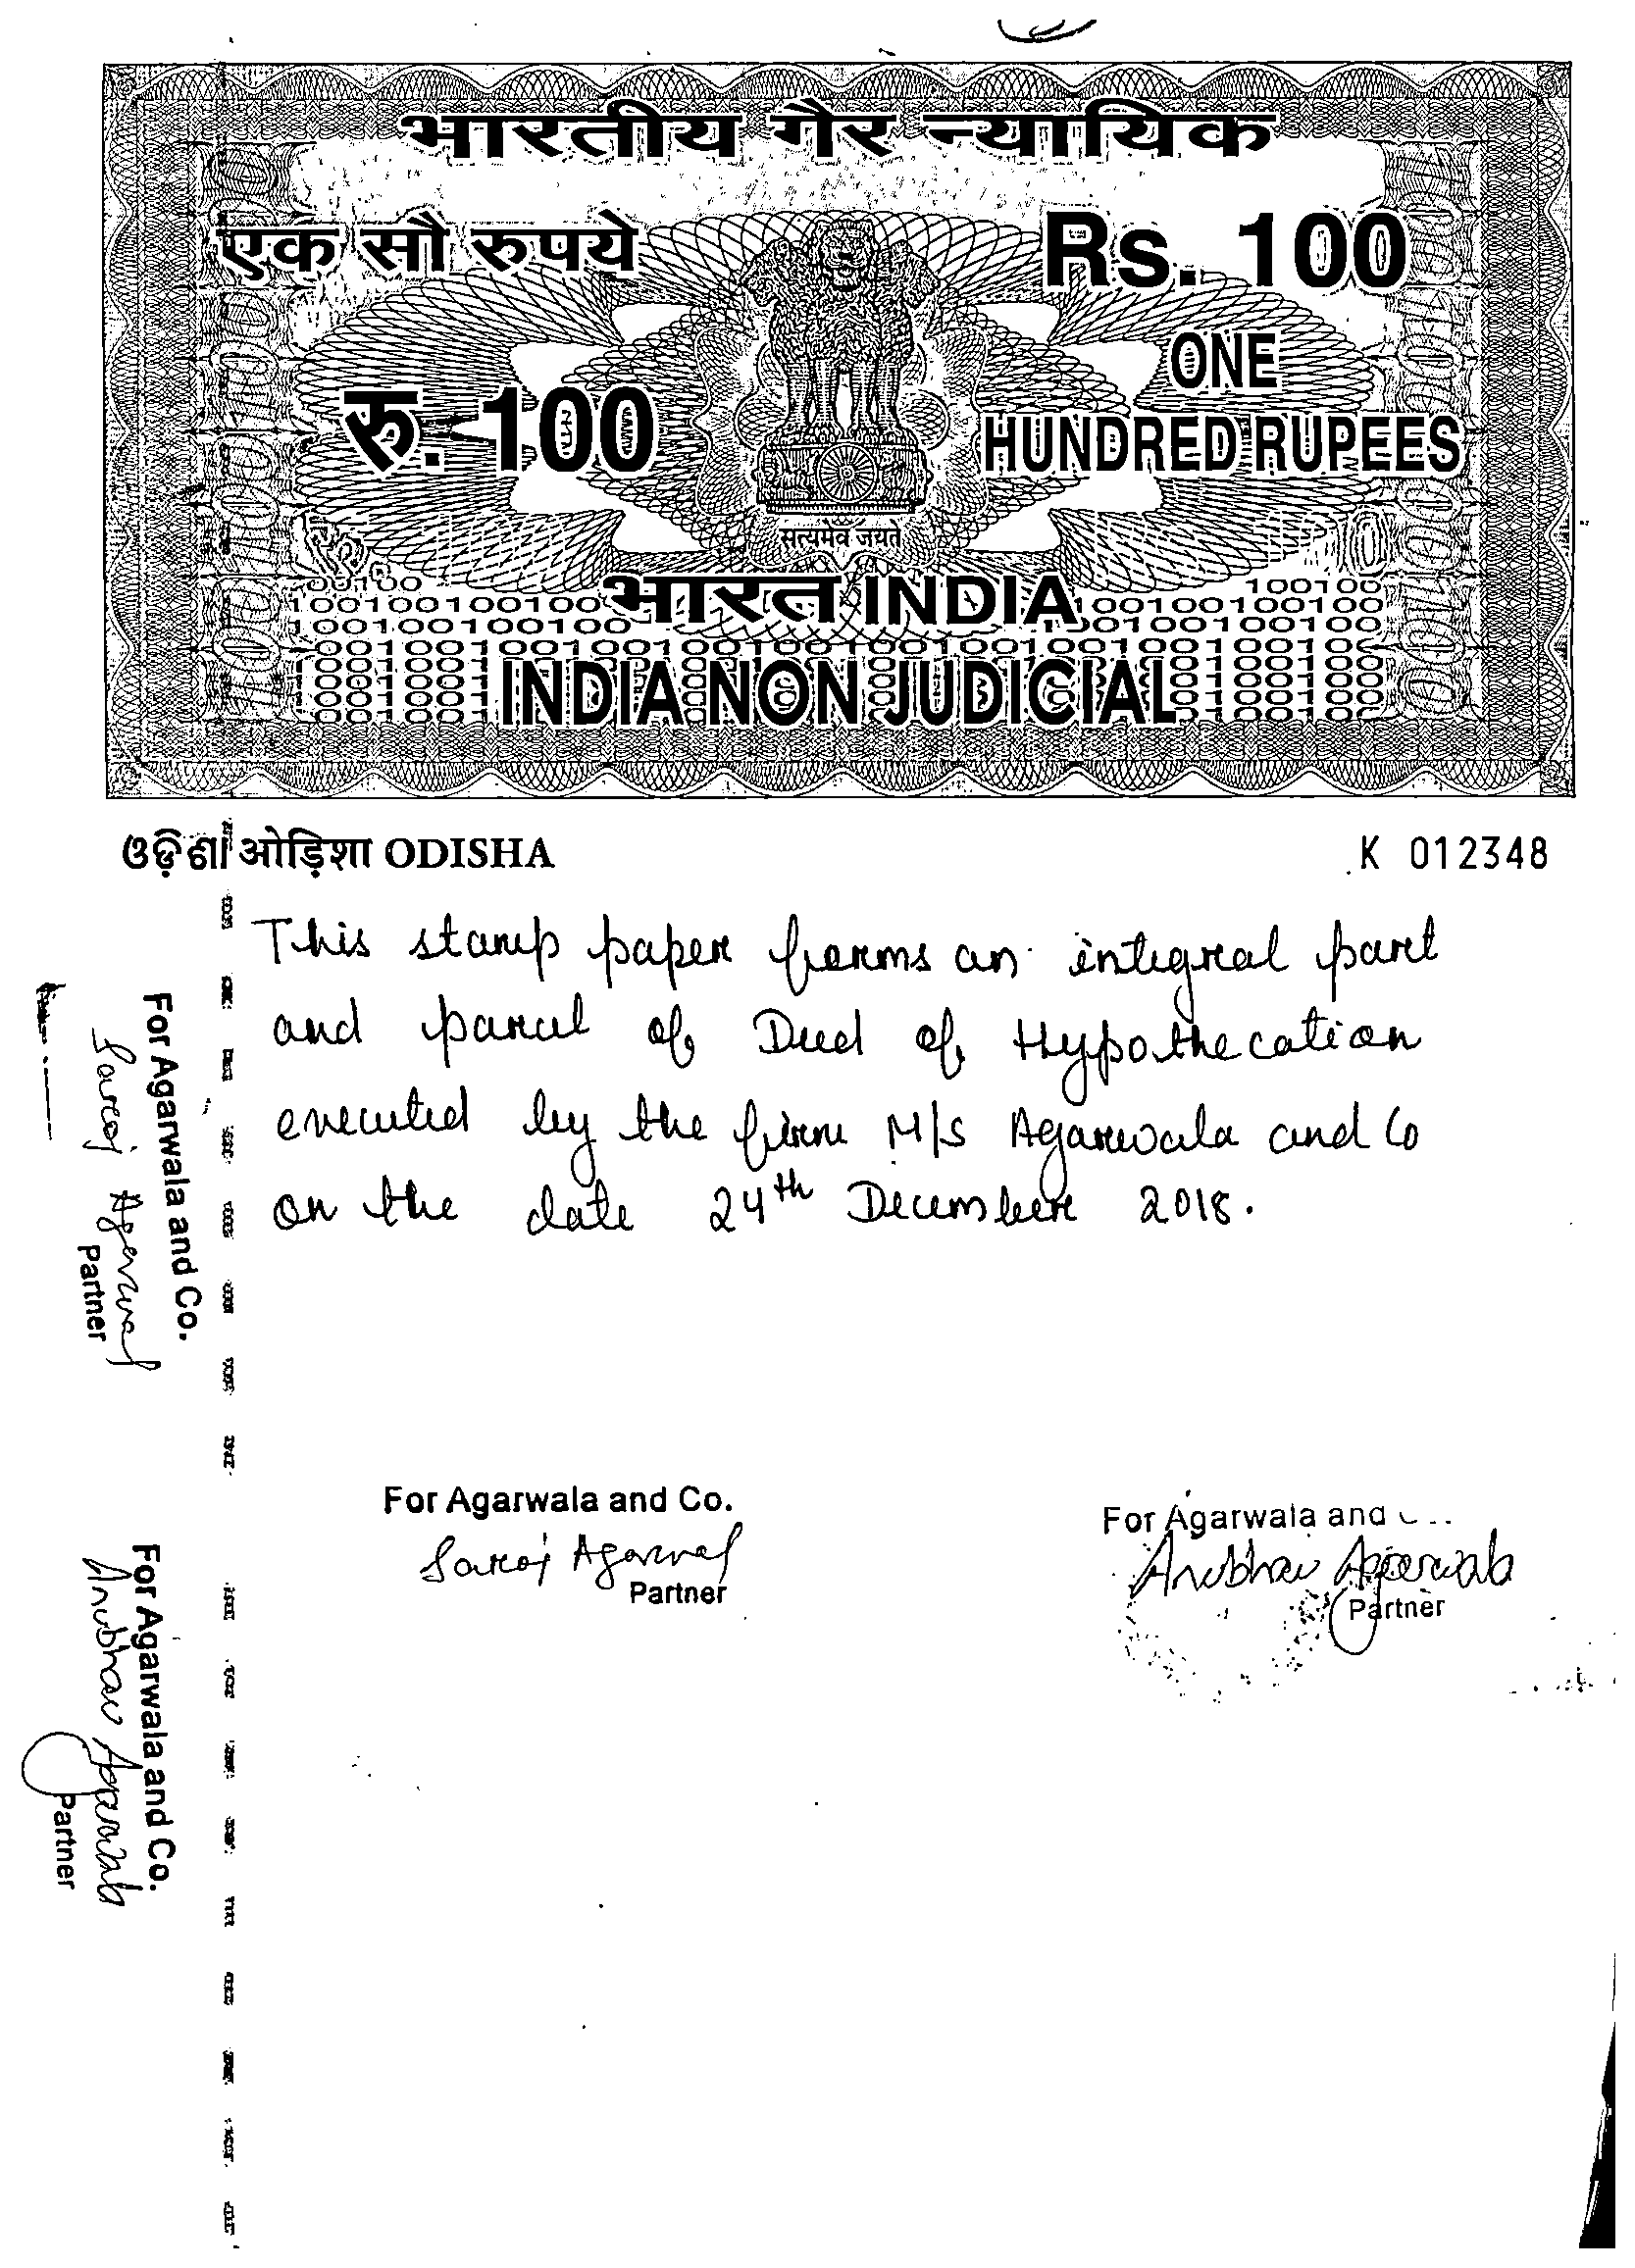 भारतीय गैर न्यायिक
एक सौ रुपये
Rs. 100
रु. 100
ONE
HUNDRED RUPEES
सत्यमेव जयते
भारत INDIA
INDIA NON JUDICIAL
ଓଡ଼ିଶା ओड़िशा ODISHA
K 012348
This stamp paper forms an integral part
and parcel of Deed of Hypothecation
executed by the firm M/s Agarwala and Co
on the date 24th December 2018.
For Agarwala and Co.
Saroj Agarwal
Partner
For Agarwala and
Anubhav Agarwala
Partner
For Agarwala and Co.
Saroj Agarwal
Partner
For Agarwala and Co.
Anubhav Agarwala
Partner